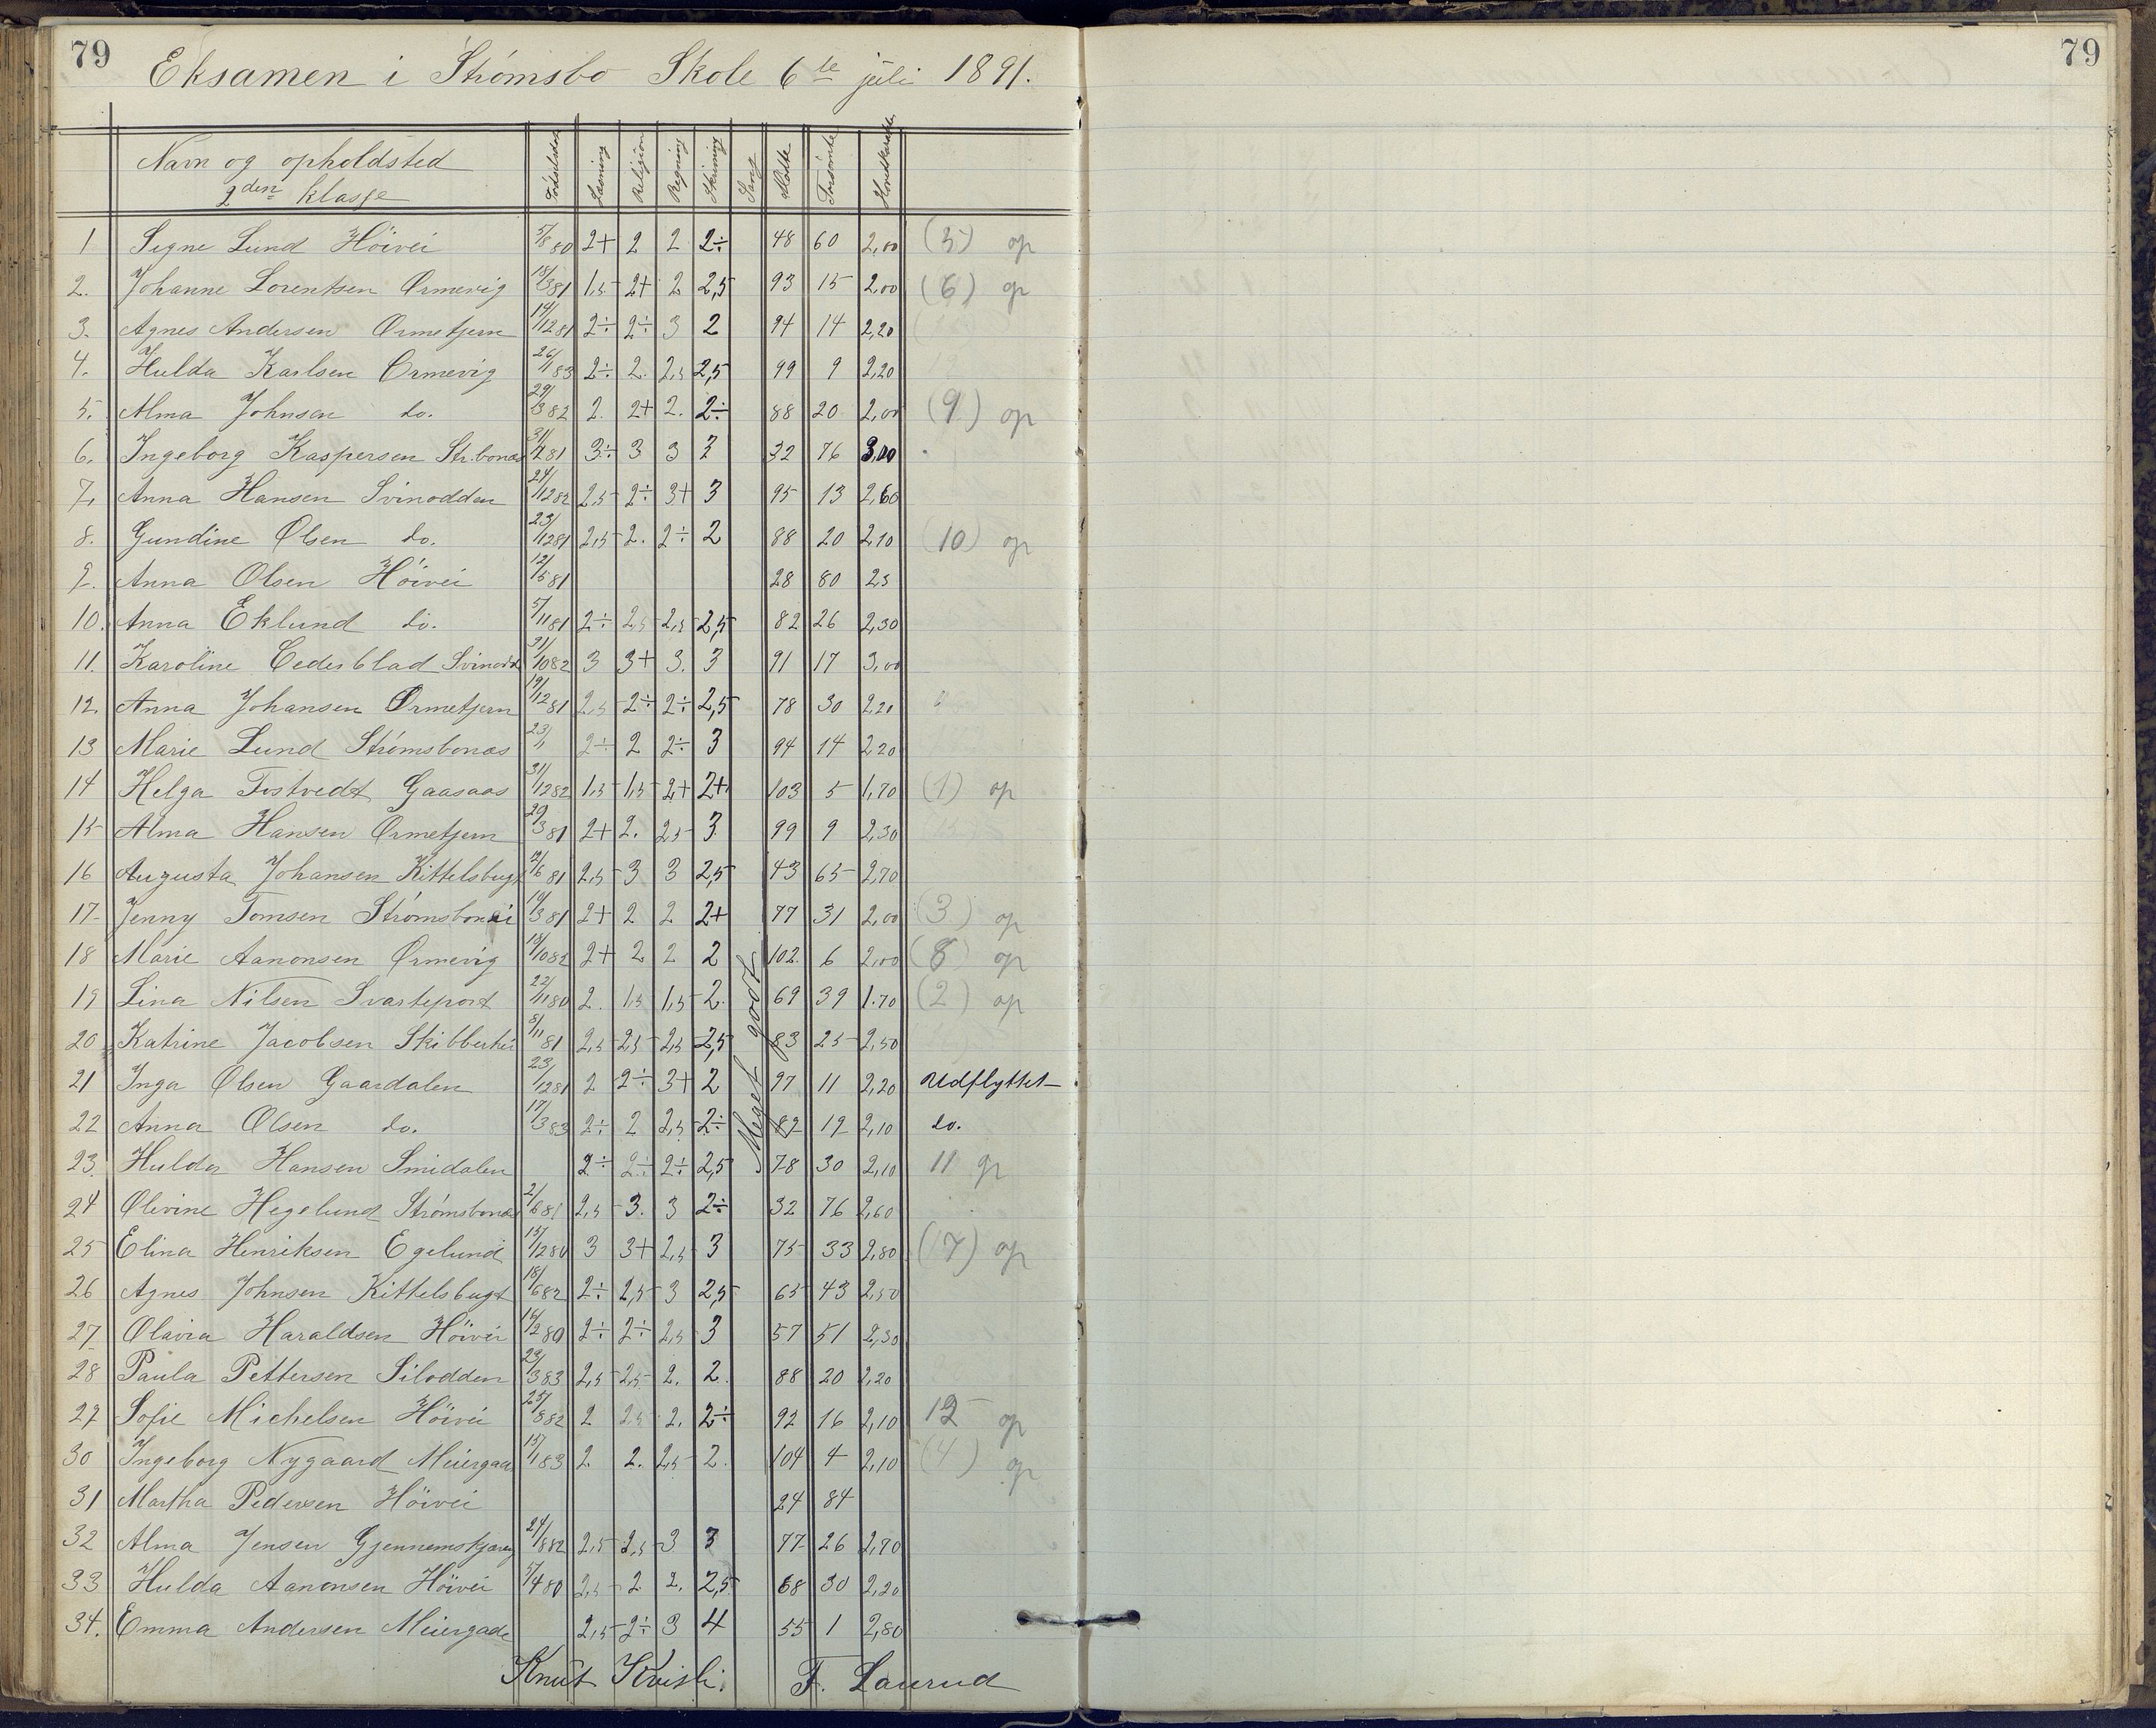 79
79
Eksamen i Strømsbo Skole 6te juli 1891.
Navn og opholdsted
2den klasse
Læsning Religion Regning Skrivning Sang Mødte Forsømte Hovedkarakter
1 Signe Lund Höivei 5/8 80 2+ 2 2 2÷ 48 60 2,00 (5) op
2. Johanne Lorentsen Ørmevig 18/3 81 1,5 2+ 2 2,5 93 15 2,00 (6) op
3. Agnes Andersen Ørmetjern 14/12 81 2÷ 2÷ 3 2 94 14 2,20
4. Hulda Karlsen Ørmevig 26/1 83 2÷ 2. 2,5 2,5 99 9 2,20
5. Alma Johnsen do. 29/3 82 2. 2+ 2. 2÷ 88 20 2,00 (9) op
6. Ingeborg Kaspersen Str.bonæs 31/ 81 3÷ 3 3 32 76 3,00
7. Anna Hansen Svinodden 24/12 82 2,5 2÷ 3+ 3 95 13 2,60
8. Gundine Olsen do. 23/12 81 2,5 2. 2÷ 2 88 20 2,10 (10) op
9. Anna Olsen Höivei 12/5 81 28 80 2,5
10. Anna Eklund do. 5/11 81 2÷ 2,5 2,5 2,5 82 26 2,30
11. Karoline Cederblad Svinodd 31/10 82 3 3+ 3. 3 91 17 3,00
12. Anna Johansen Ørmetjern 19/12 81 2,5 2÷ 2÷ 2,5 78 30 2,20
13 Marie Lund Strømsbonæs 23/1 2÷ 2 2÷ 3 94 14 2,20
14 Helga Tostvedt Gaasaas 31/12 82 1,5 1,5 2+ 2+ 103 5 1,70 (1) op
15 Alma Hansen Ørmetjern 29/3 81 2+ 2. 2,5 3 99 9 2,30
16 Augusta Johansen Kittelsbugt /6 81 2,5 3 3 2,5 43 65 2,70
17 Jenny Tomsen 19/3 81 2+ 2 2 2+ 77 31 2,00 (3) op
18 Marie Aanonsen Ørmevig 18/10 82 2+ 2 2 2 102 6 2,00 (8) op
19 Lina Nilsen Svarteport 22/11 80 2. 1,5 1,5 2. 69 39 1.70 (2) op
20 Katrine Jacobsen Skibberhei 8/11 81 2,5 2,5 2,5 2,5 83 25 2,50
21 Inga Olsen Gaardalen 23/12 81 2 2÷ 3+ 2 97 11 2,20 Udflyttet
22 Anna Olsen do. 17/3 83 2÷ 2 2,5 2÷ 89 19 2,10 do.
Meget godt
23. Hulda Hansen Smidalen 2÷ 2÷ 2÷ 2,5 78 30 2,10 11 op
24 Olivine Hegelund Strømsbonæs 2/6 81 2,5 3. 3 2÷ 32 76 2,60
25 Elina Henriksen Egelund 15/12 80 3 3+ 2,5 3 75 33 2,80 (17) op
26 Agnes Johnsen Kittelsbugt 18/6 82 2÷ 2,5 3 2,5 65 43 2,50
27 Olavia Haraldsen Höivei 14/2 80 2÷ 2÷ 2,5 3 57 51 2,30
28 Paula Pettersen Silodden 23/3 83 2,5 2,5 2. 2. 88 20 2,20
29 Sofie Michelsen Höivei 25/8 82 2 2,5 2. 2÷ 92 16 2,10 12 op
30 Ingeborg Nygaard Meiergaa 15/1 83 2 2. 2,5 2. 104 4 2,10 (4) op
31 Martha Pedersen Höivei 24 84
32 Alma Jensen Gjennemskjæring 24/8 82 2,5 2,5 3 3 77 26 2,70
33 Hulda Aanonsen Höivei 5/4 80 2,5 2 2. 2,5 68 30 2,20
34. Emma Andersen Meiergade 2,5 2÷ 3 4 55 1 2,80
Knut Kvisli. F. Laurud